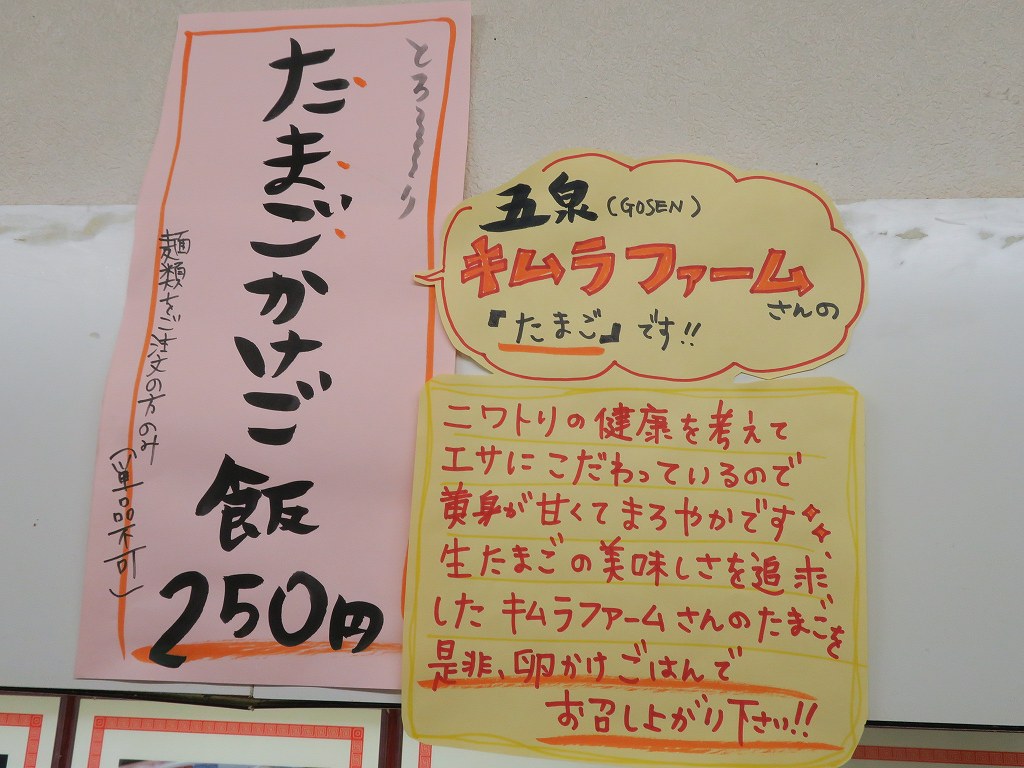 とろ～～～り
たまごかけご飯
250円
麺類をご注文の方のみ
(単品不可)
五泉(GOSEN)
キムラファーム
さんの
『たまご』です!!
ニワトリの健康を考えて
エサにこだわっているので
黄身が甘くてまろやかです
生たまごの美味しさを追求
したキムラファームさんのたまごを
是非、卵かけごはんで
お召し上がり下さい!!